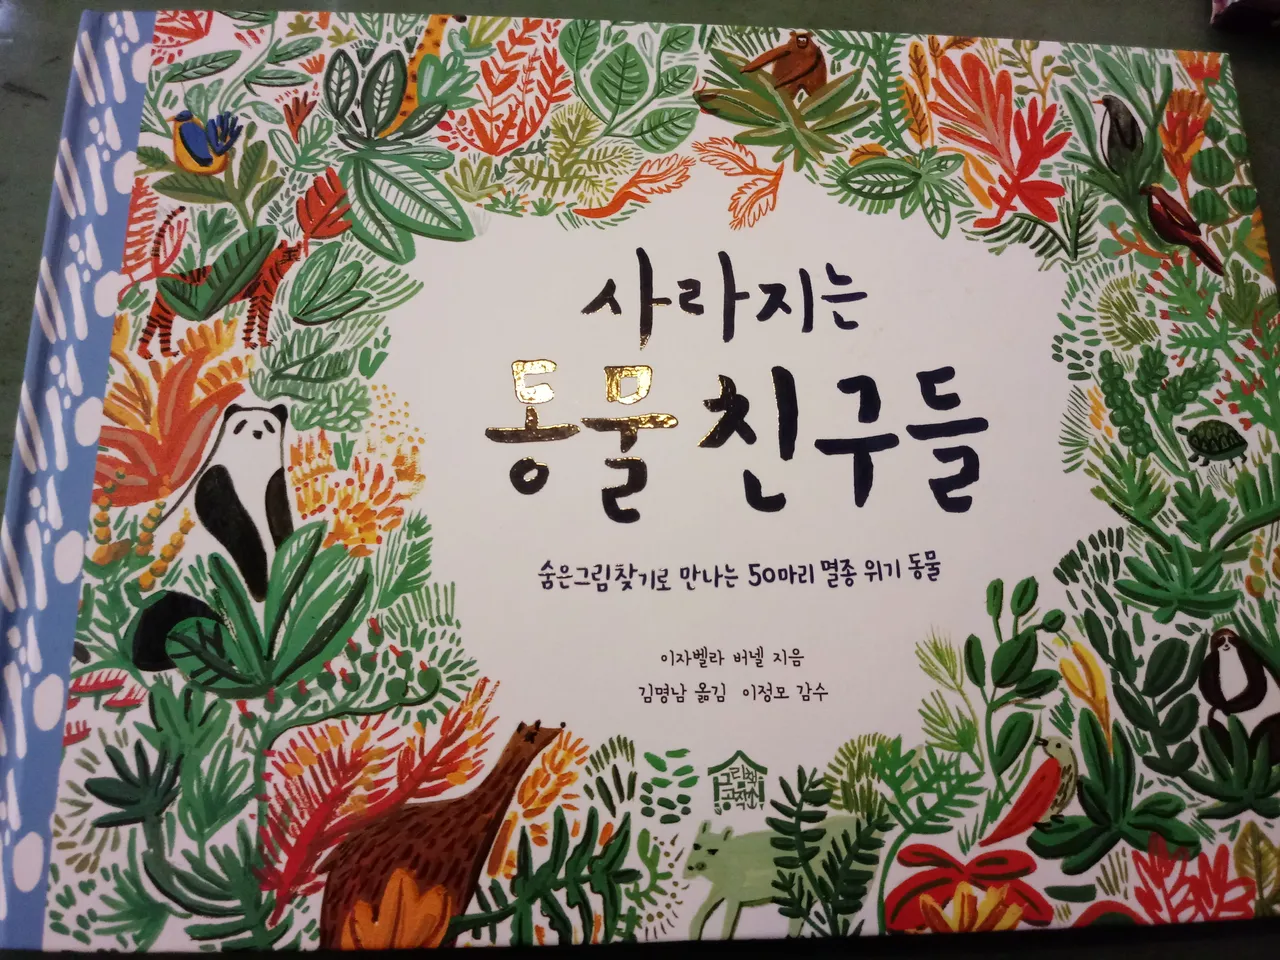 사라지는
동물 친구들
숨은그림찾기로 만나는 50마리 멸종 위기 동물
이자벨라 버넬 지음
김명남 옮김 이정모 감수
그림책
공작소